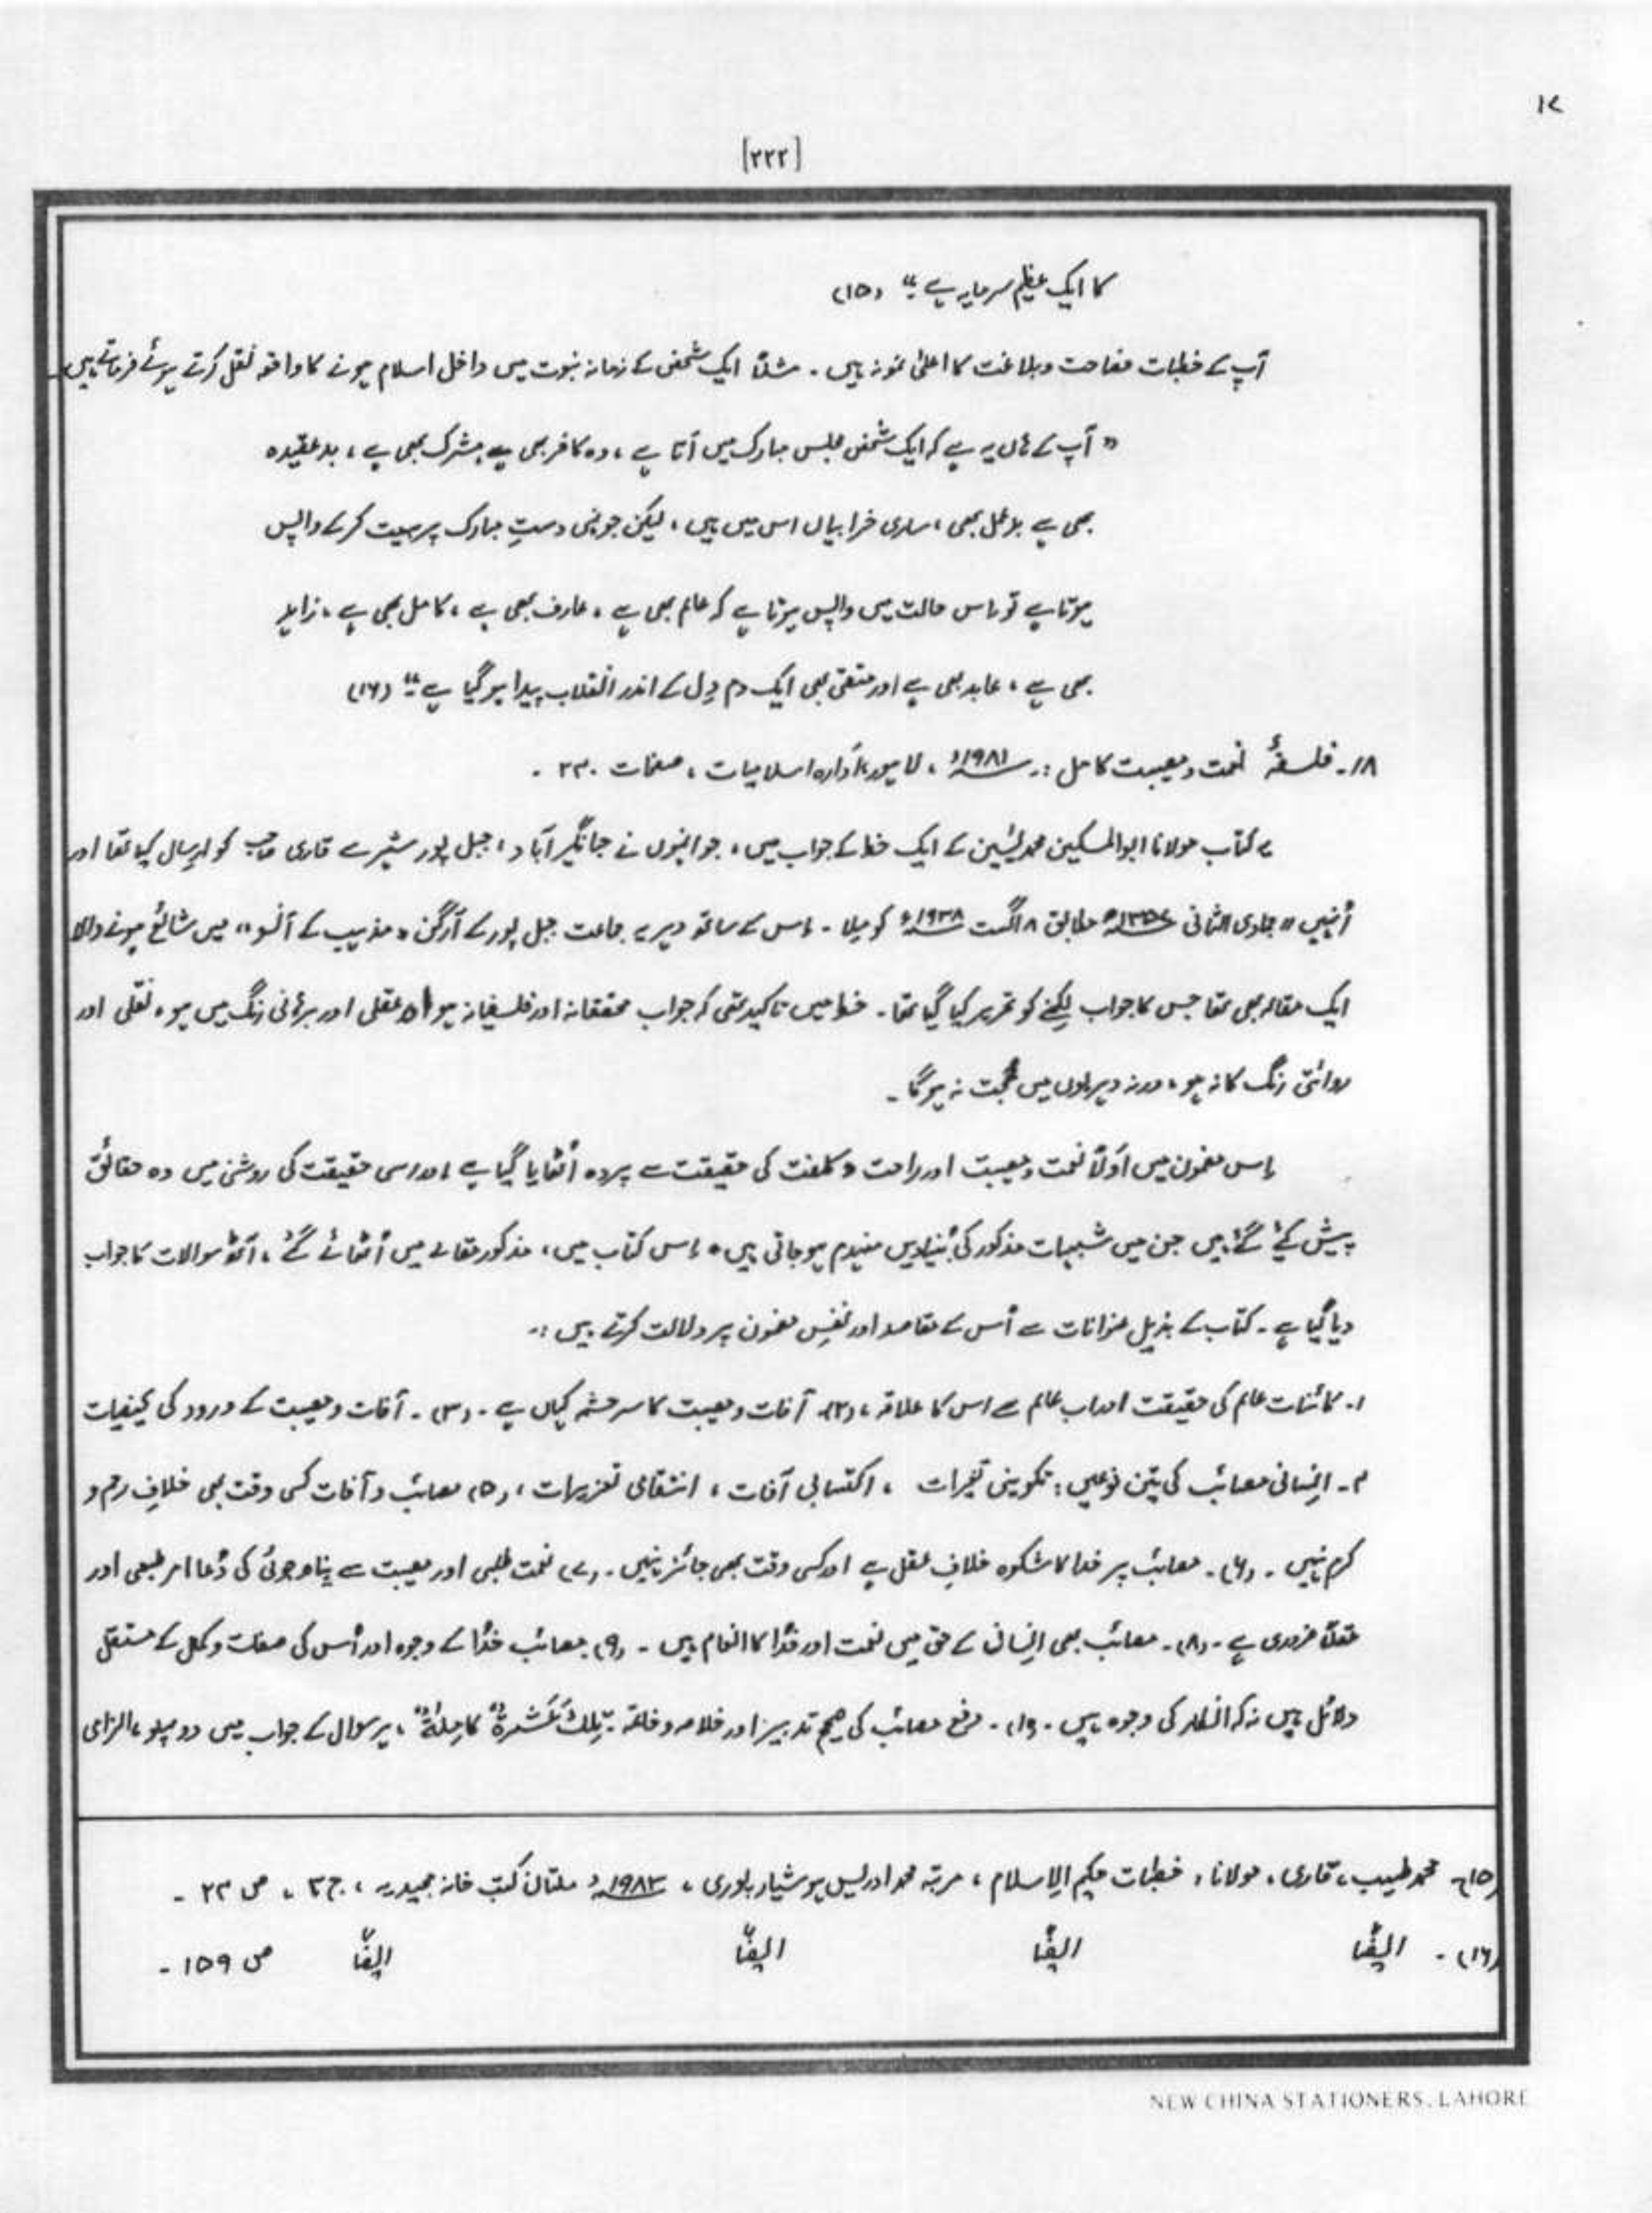 ۱۷
[۲۲۲]
کا ایک عظیم سرمایہ ہے۔" (۱۵)
آپ کے خطبات فصاحت و بلاغت کا اعلیٰ نمونہ ہیں۔ مثلاً ایک شخص کے زمانہ نبوت میں داخل اسلام ہونے کا واقعہ نقل کرتے ہوئے فرماتے ہیں
"آپ کے ہاں یہ ہے کہ ایک شخص مجلس مبارک میں آتا ہے، وہ کافر بھی ہے مشرک بھی ہے، بدعقیدہ
بھی ہے بدعمل بھی، ساری خرابیاں اس میں ہیں، لیکن جونہی دستِ مبارک پر بیعت کر کے واپس
ہوتا ہے تو اس حالت میں واپس ہوتا ہے کہ عالم بھی ہے، عارف بھی ہے، کامل بھی ہے، زاہد
بھی ہے، عابد بھی ہے اور متقی بھی ایک دم دِل کے اندر انقلاب پیدا ہو گیا ہے۔" (۱۶)
۱۸۔ فلسفۂ نعمت و مصیبت کامل :۔ ۱۹۸۱ء، لاہور، ادارہ اسلامیات، صفحات ۲۳۰۔
یہ کتاب مولانا ابوالمسکین محمد یٰسین کے ایک خط کے جواب میں، جو انہوں نے جہانگیر آباد، جبل پور شہر سے قاری صاحب کو ارسال کیا تھا اور
اُنہیں ۱۱ جمادی الثانی ۱۳۵۷ھ مطابق ۸ اگست ۱۹۳۸ء کو ملا۔ اِس کے ساتھ دہریہ جماعت جبل پور کے آرگن "مذہب کے آنسو" میں شائع ہونے والا
ایک مقالہ بھی تھا جس کا جواب لکھنے کو تحریر کیا گیا تھا۔ خط میں تاکید تھی کہ جواب محققانہ اور فلسفیانہ ہو، عقلی اور برہانی رنگ میں ہو، نقلی اور
روائتی رنگ کا نہ ہو، ورنہ دہریوں میں حجت نہ ہو گا۔
اِس مضمون میں اَولاً نعمت و مصیبت اور راحت و کلفت کی حقیقت سے پردہ اُٹھایا گیا ہے اور اسی حقیقت کی روشنی میں وہ حقائق
پیش کئے گئے ہیں جن میں شبہات مذکور کی بُنیادیں منہدم ہو جاتی ہیں۔ اِس کتاب میں، مذکور مقالے میں اُٹھائے گئے، آٹھ سوالات کا جواب
دیا گیا ہے۔ کتاب کے بذیل عنوانات سے اُس کے مقاصد اور نفسِ مضمون پر دلالت کرتے ہیں :۔
۱۔ کائنات عالم کی حقیقت اور اب عالم سے اس کا علاقہ، (۲)۔ آفات و مصیبت کا سرچشمہ کہاں ہے۔ (۳)۔ آفات و مصیبت کے ورود کی کیفیات
۴۔ اِنسانی مصائب کی تین نوعیں: تکوینی تغیرات، اکتسابی آفات، انتقامی تعزیرات، (۵) مصائب و آفات کسی وقت بھی خلافِ رحم و
کرم نہیں۔ (۶)۔ مصائب پر خدا کا شکوہ خلافِ عقل ہے اور کسی وقت بھی جائز نہیں۔ (۷) نعمت طلبی اور مصیبت سے پناہ جوئی کی دُعا امر طبعی اور
عقلاً ضروری ہے۔ (۸)۔ مصائب بھی اِنسانی کے حق میں نعمت اور خُدا کا انعام ہیں۔ (۹) مصائب خُدا کے وجود اور اُس کی صفات و کمال کے مستقل
دلائل ہیں نہ کہ انکار کی وجوہ ہیں۔ (۱۰)۔ دفع مصائب کی صحیح تدبیر اور خلاصہ و خاتمہ۔ تِلْکَ عَشَرَۃٌ کَامِلَۃٌ، ہر سوال کے جواب میں دو پہلو، الزامی
(۱۵)۔ محمد طیب، قاری، مولانا، خطبات حکیم الاِسلام، مرتبہ محمد ادریس ہوشیارپوری، ۱۹۸۳ء ملتان کتب خانہ مجیدیہ، ج ۳، ص ۲۳۔
(۱۶)۔ ایضًا ایضًا ایضًا ایضًا ص ۱۵۹۔
NEW CHINA STATIONERS, LAHORE